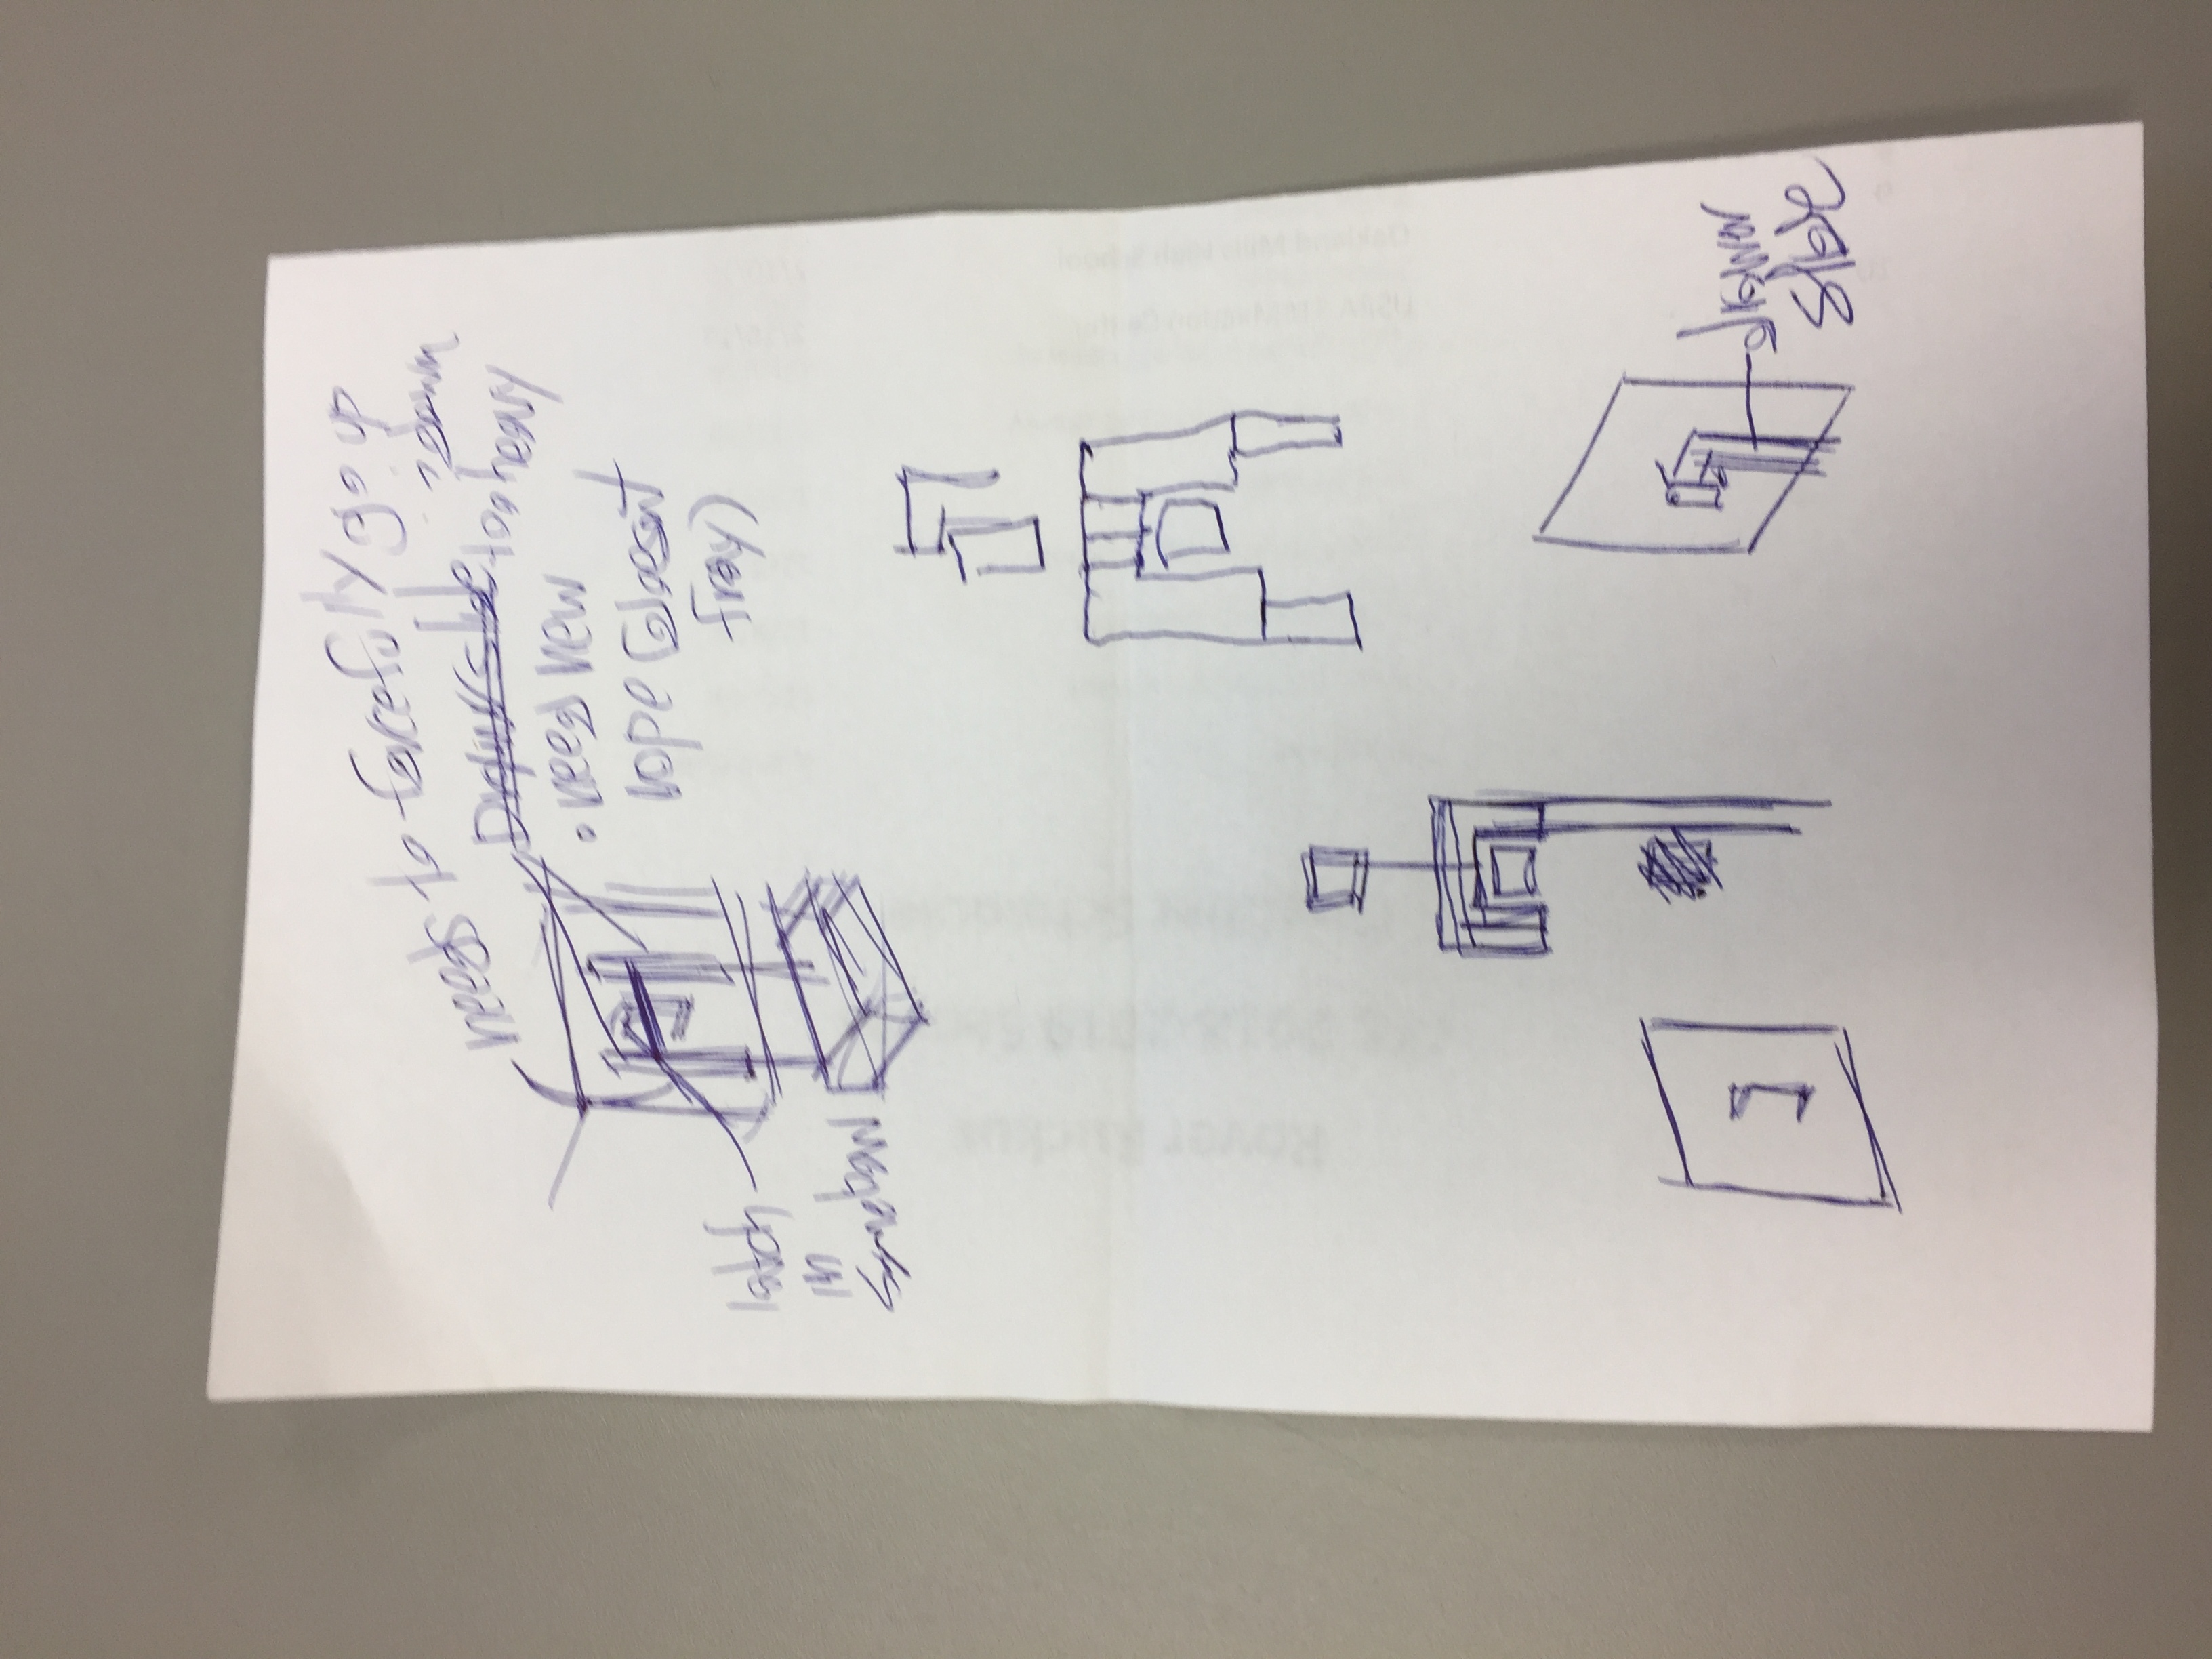 needs to forcefully go up
, down
Drawer slide too heavy
• need new
rope (doesnt
fray)
latch
in
somehow
drawer
slide